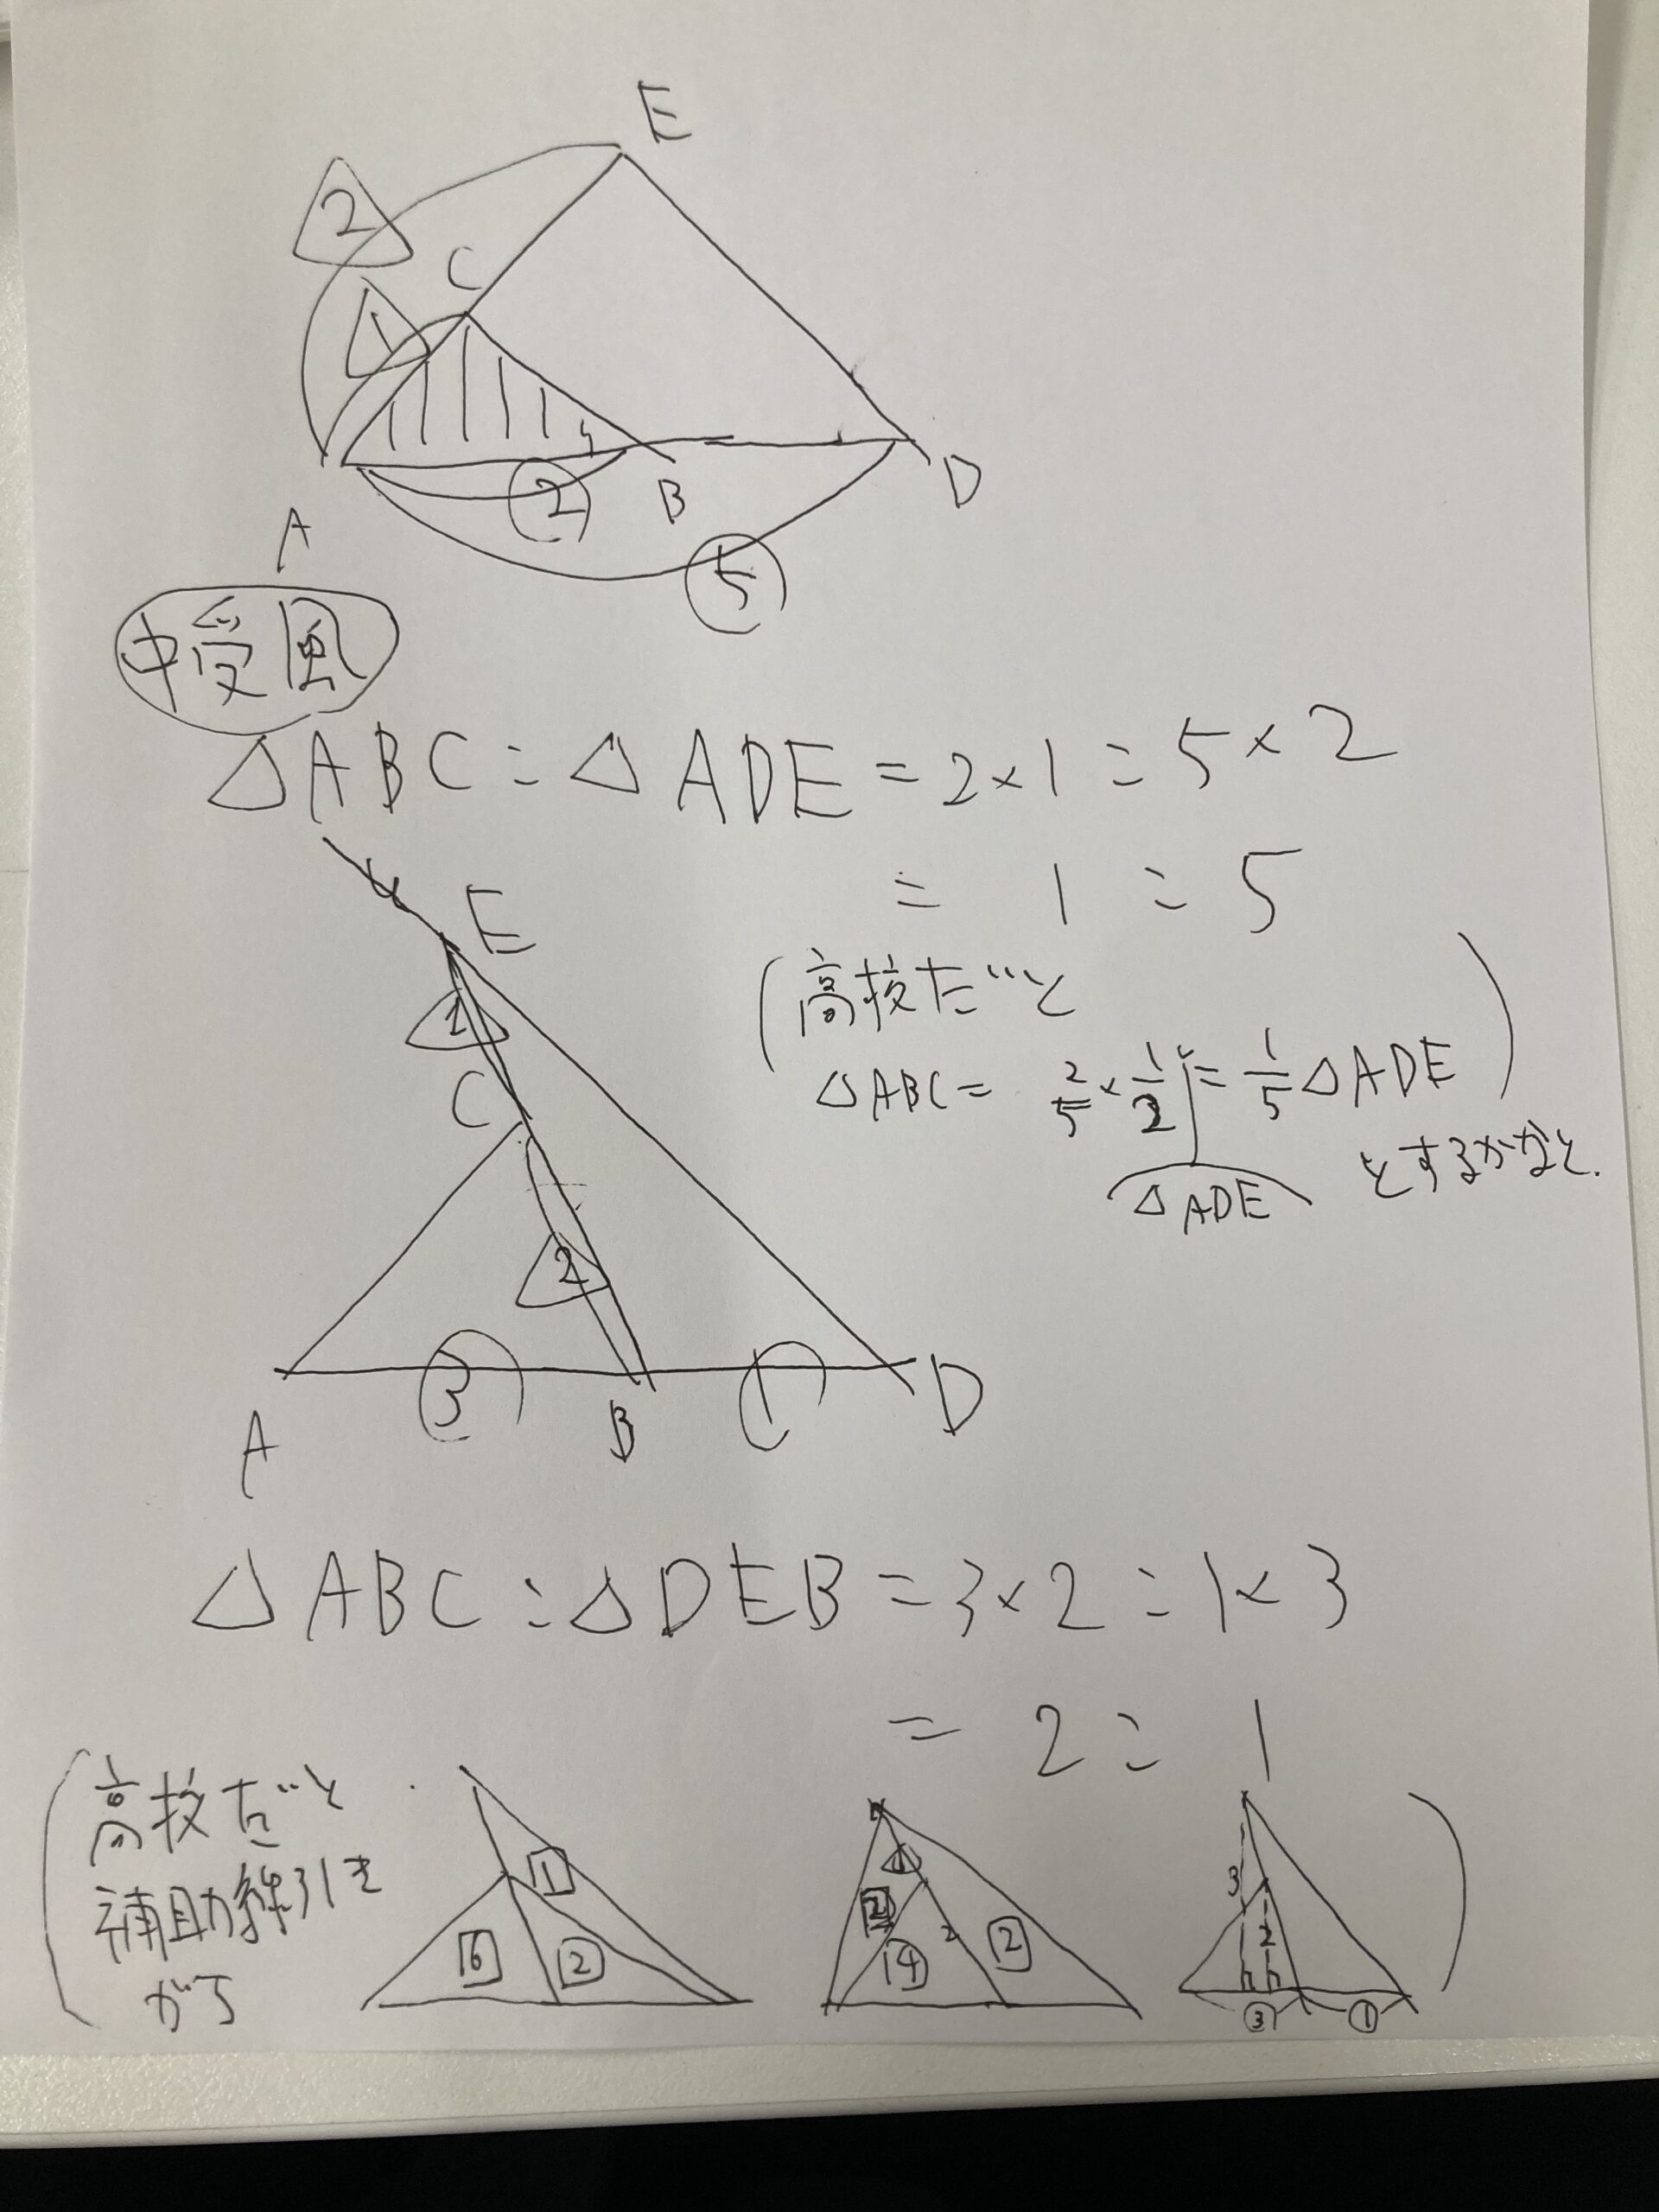 E
△2
C
△1
② B D
A
⑤
中受風
△ABC:△ADE=2×1:5×2
= 1:5
E
(高校だと
△ABC= 2/5×1/2=1/5△ADE)
△ADE とするかなと.
△1
C
△2
③ ①
A B D
△ABC:△DEB=3×2:1×3
= 2:1
(高校だと
補助線引き
が丁
1
6 2
△1
2 2
4 2
3
2
③ ①)